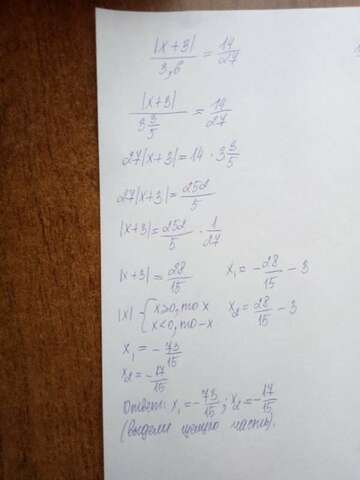 |x+3|/3,6 = 14/27
|x+3|/3 3/5 = 14/27
27|x+3|=14 · 3 3/5
27|x+3|= 252/5
|x+3|= 252/5 · 1/27
|x+3|= 28/15 x₁= -28/15 - 3
|x| { x≥0, то x x₂= 28/15 - 3
x<0, то -x
x₁= -73/15
x₂= -17/15
Ответ: x₁= -73/15; x₂= -17/15
(выдели целую часть).